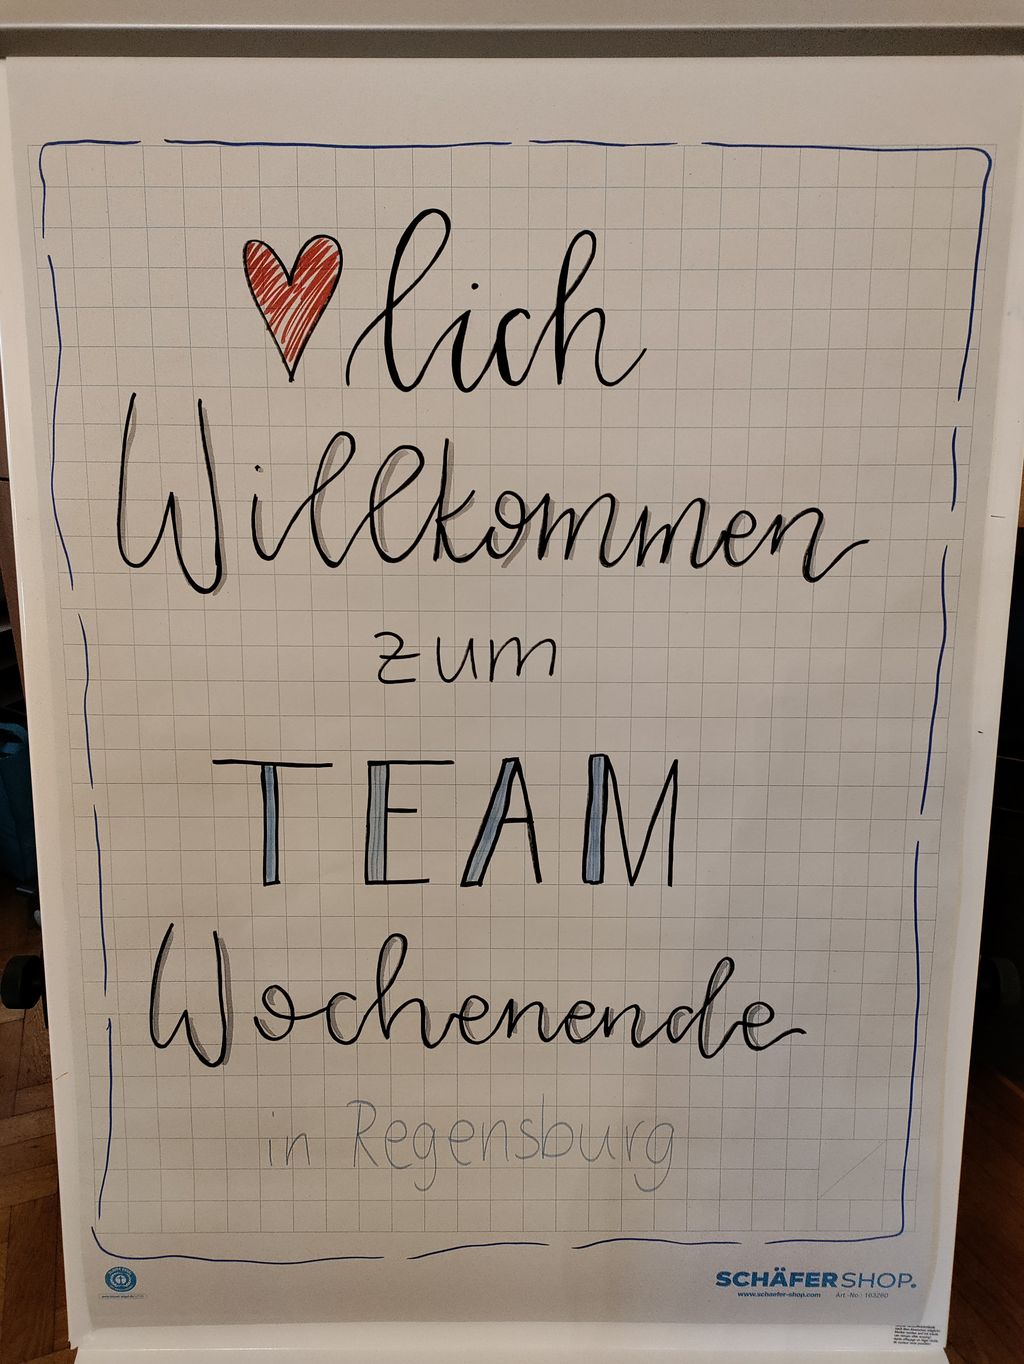 lich
Willkommen
zum
TEAM
Wochenende
in Regensburg
SCHÄFER SHOP.
www.schaefer-shop.com Art.-No.: 163260